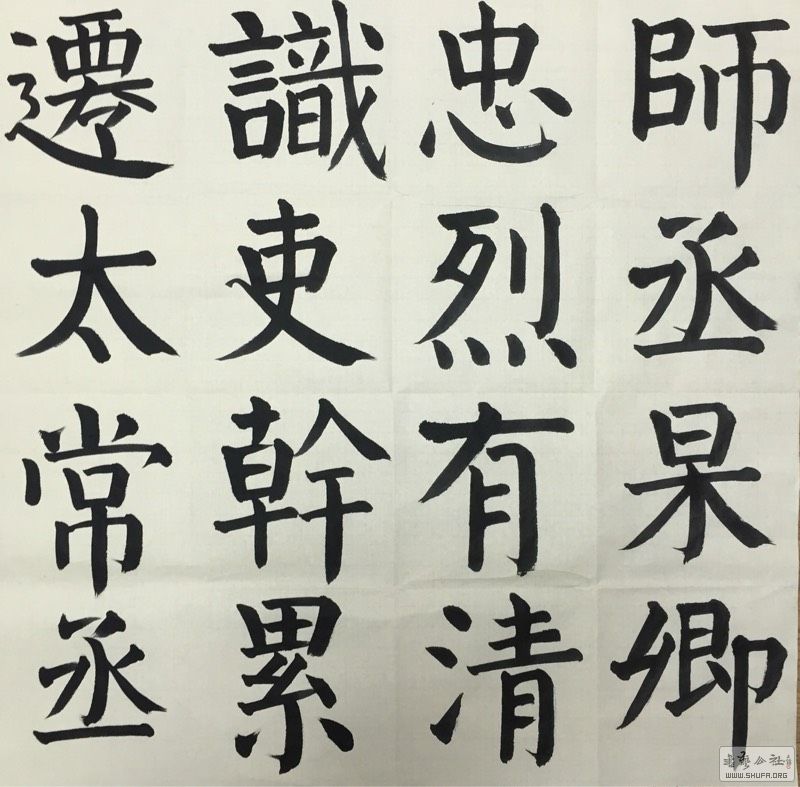 師丞杲卿
忠烈有清
識吏幹累
遷太常丞
WWW.SHUFA.ORG